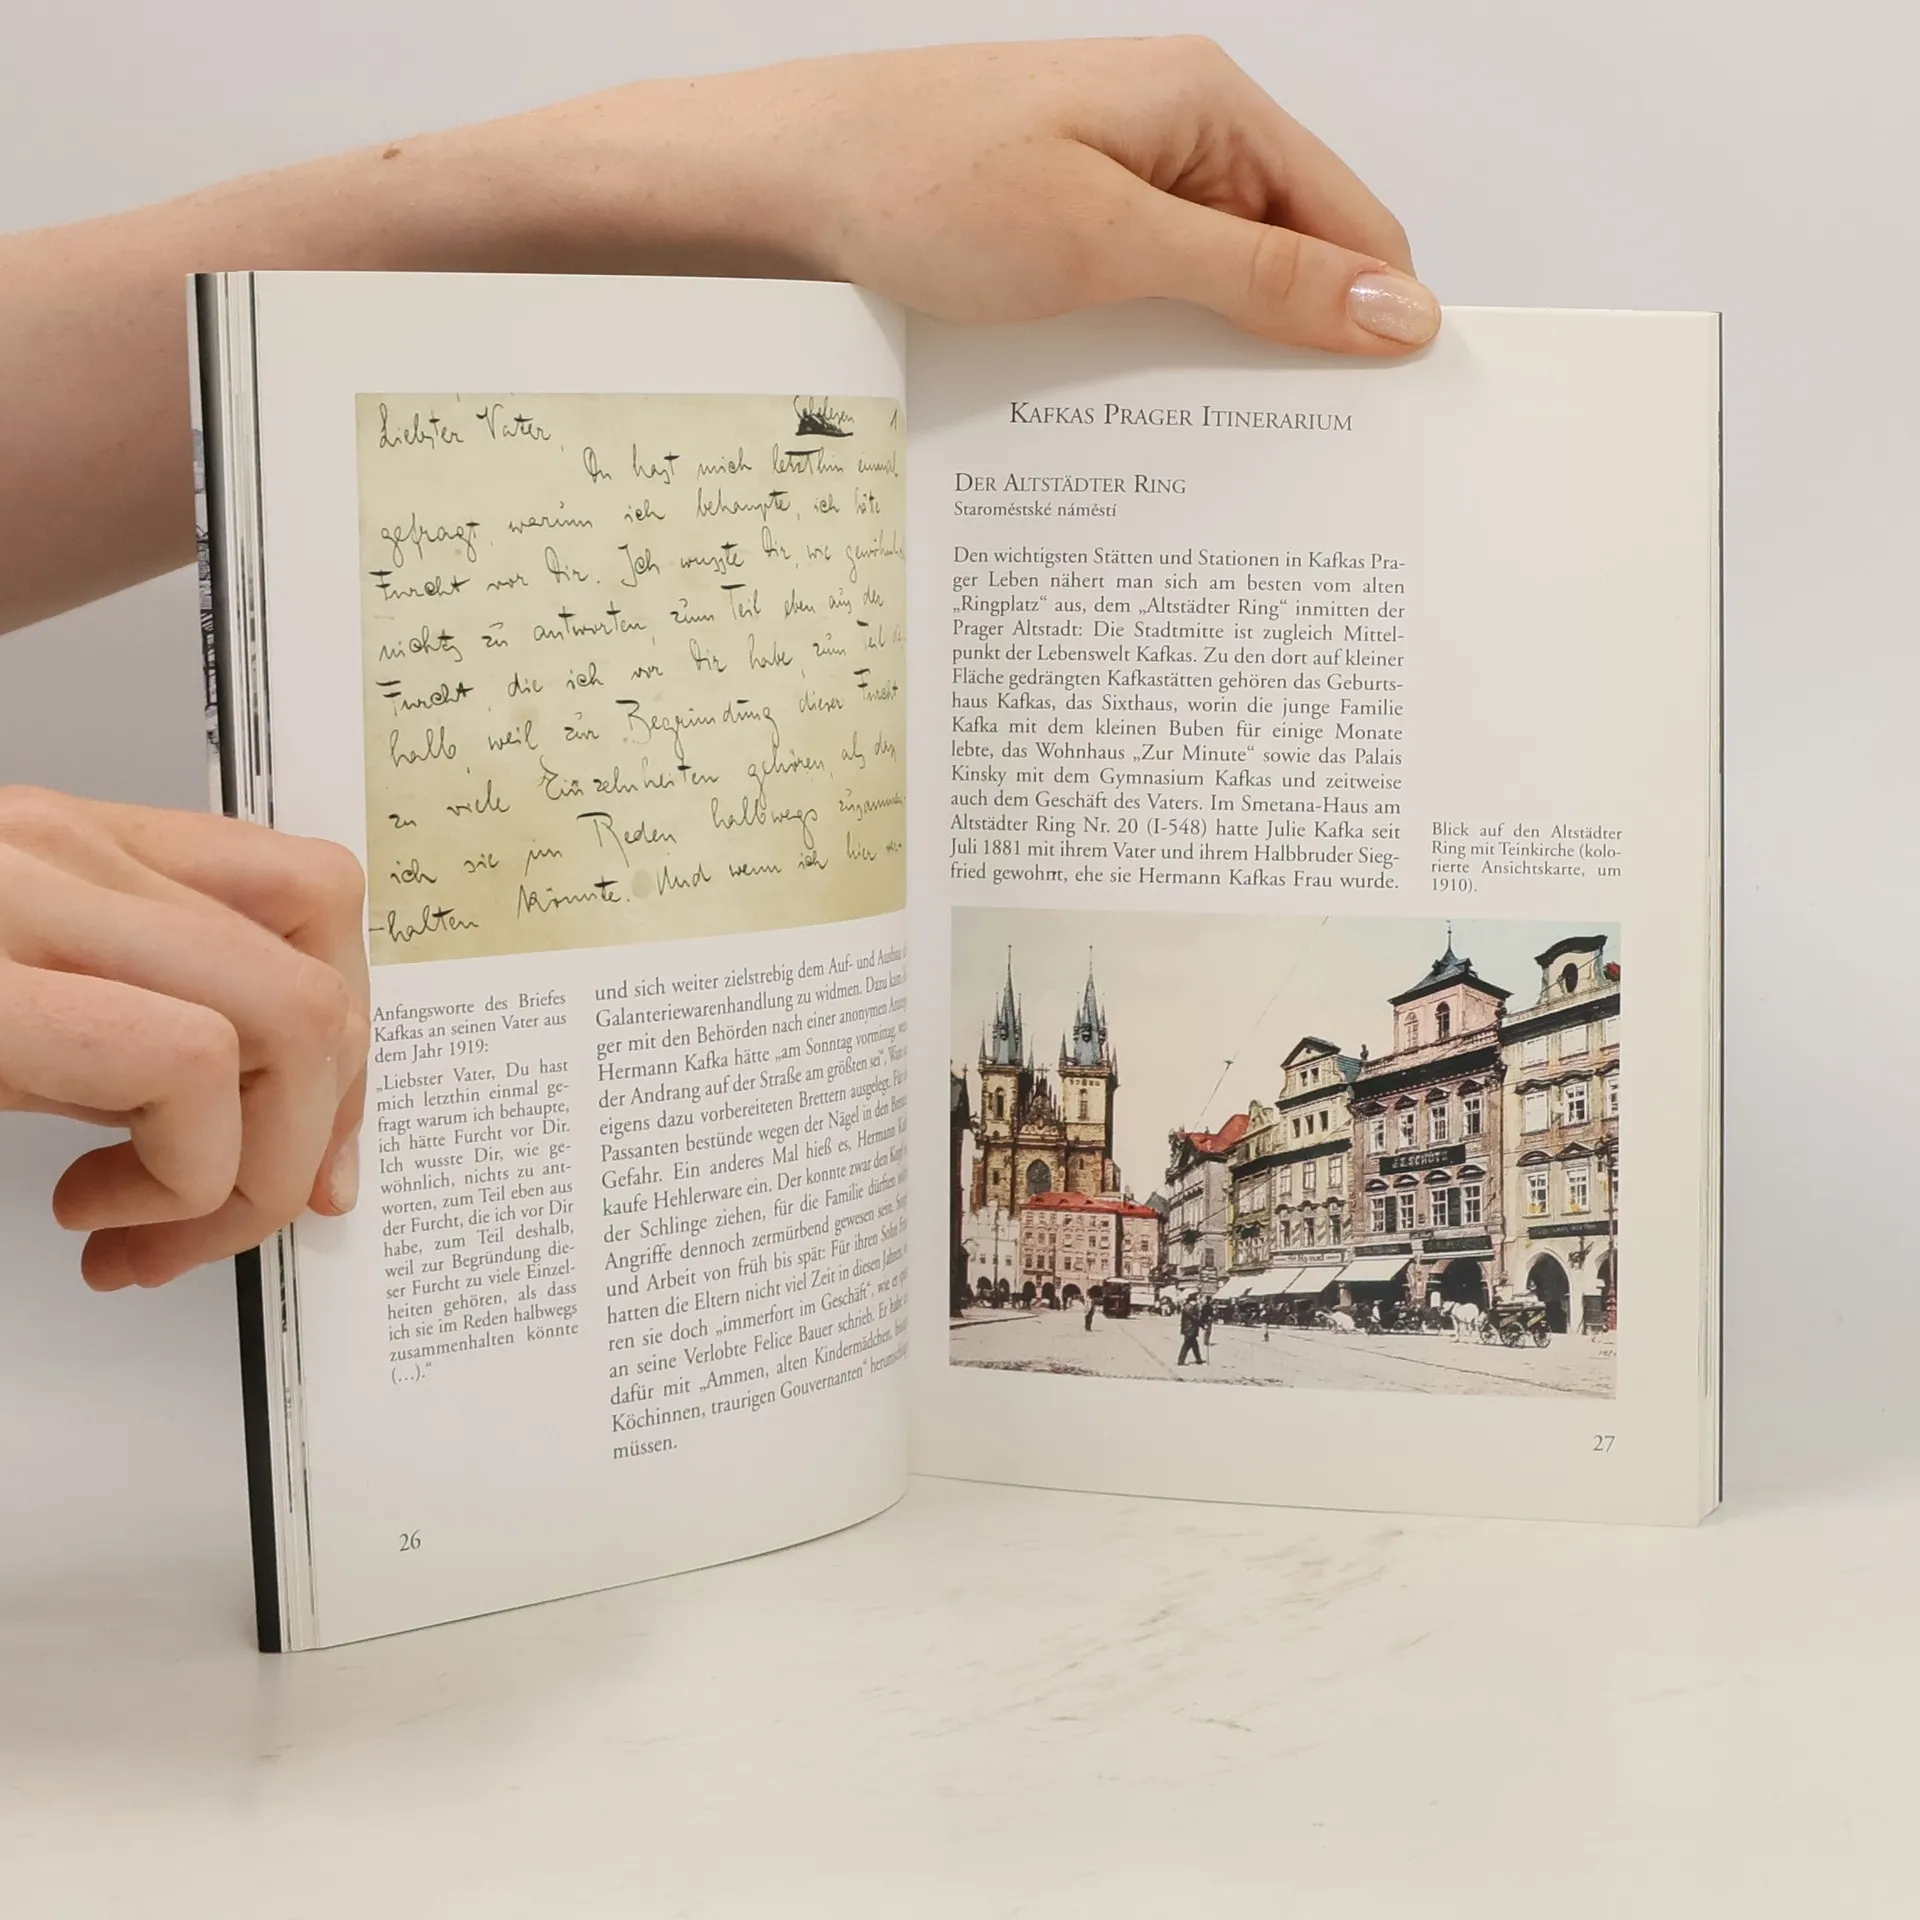 Liebster Vater,
Schelesen 1
Du hast mich letzthin einmal
gefragt, warum ich behaupte, ich hätte
Furcht vor Dir. Ich wusste Dir, wie gewöhnlich,
nichts zu antworten, zum Teil eben aus der
Furcht, die ich vor Dir habe, zum Teil
halb, weil zur Begründung dieser Furcht
zu viele Einzelnheiten gehören, als dass
ich sie im Reden halbwegs zusammen-
halten könnte. Und wenn ich hier
Anfangsworte des Briefes
Kafkas an seinen Vater aus
dem Jahr 1919:
„Liebster Vater, Du hast
mich letzthin einmal ge-
fragt warum ich behaupte,
ich hätte Furcht vor Dir.
Ich wusste Dir, wie ge-
wöhnlich, nichts zu ant-
worten, zum Teil eben aus
der Furcht, die ich vor Dir
habe, zum Teil deshalb,
weil zur Begründung die-
ser Furcht zu viele Einzel-
heiten gehören, als dass
ich sie im Reden halbwegs
zusammenhalten könnte
(...).“
und sich weiter zielstrebig dem Auf- und Ausbau
Galanteriewarenhandlung zu widmen. Dazu kam
ger mit den Behörden nach einer anonymen
Hermann Kafka hätte „am Sonntag vormittag,
der Andrang auf der Straße am größten sei“,
eigens dazu vorbereiteten Brettern ausgelegt. Für
Passanten bestünde wegen der Nägel in den
Gefahr. Ein anderes Mal hieß es, Hermann
kaufe Hehlerware ein. Der konnte zwar den Kopf
der Schlinge ziehen, für die Familie dürften
Angriffe dennoch zermürbend gewesen sein.
und Arbeit von früh bis spät: Für ihren Sohn
hatten die Eltern nicht viel Zeit in diesen Jahren,
ren sie doch „immerfort im Geschäft“, wie er
an seine Verlobte Felice Bauer schrieb. Er habe
dafür mit „Ammen, alten Kindermädchen,
Köchinnen, traurigen Gouvernanten“
müssen.
26
KAFKAS PRAGER ITINERARIUM
DER ALTSTÄDTER RING
Staroměstské náměstí
Den wichtigsten Stätten und Stationen in Kafkas Pra-
ger Leben nähert man sich am besten vom alten
„Ringplatz“ aus, dem „Altstädter Ring“ inmitten der
Prager Altstadt: Die Stadtmitte ist zugleich Mittel-
punkt der Lebenswelt Kafkas. Zu den dort auf kleiner
Fläche gedrängten Kafkastätten gehören das Geburts-
haus Kafkas, das Sixthaus, worin die junge Familie
Kafka mit dem kleinen Buben für einige Monate
lebte, das Wohnhaus „Zur Minute“ sowie das Palais
Kinsky mit dem Gymnasium Kafkas und zeitweise
auch dem Geschäft des Vaters. Im Smetana-Haus am
Altstädter Ring Nr. 20 (I-548) hatte Julie Kafka seit
Juli 1881 mit ihrem Vater und ihrem Halbbruder Sieg-
fried gewohnt, ehe sie Hermann Kafkas Frau wurde.
Blick auf den Altstädter
Ring mit Teinkirche (kolo-
rierte Ansichtskarte, um
1910).
27